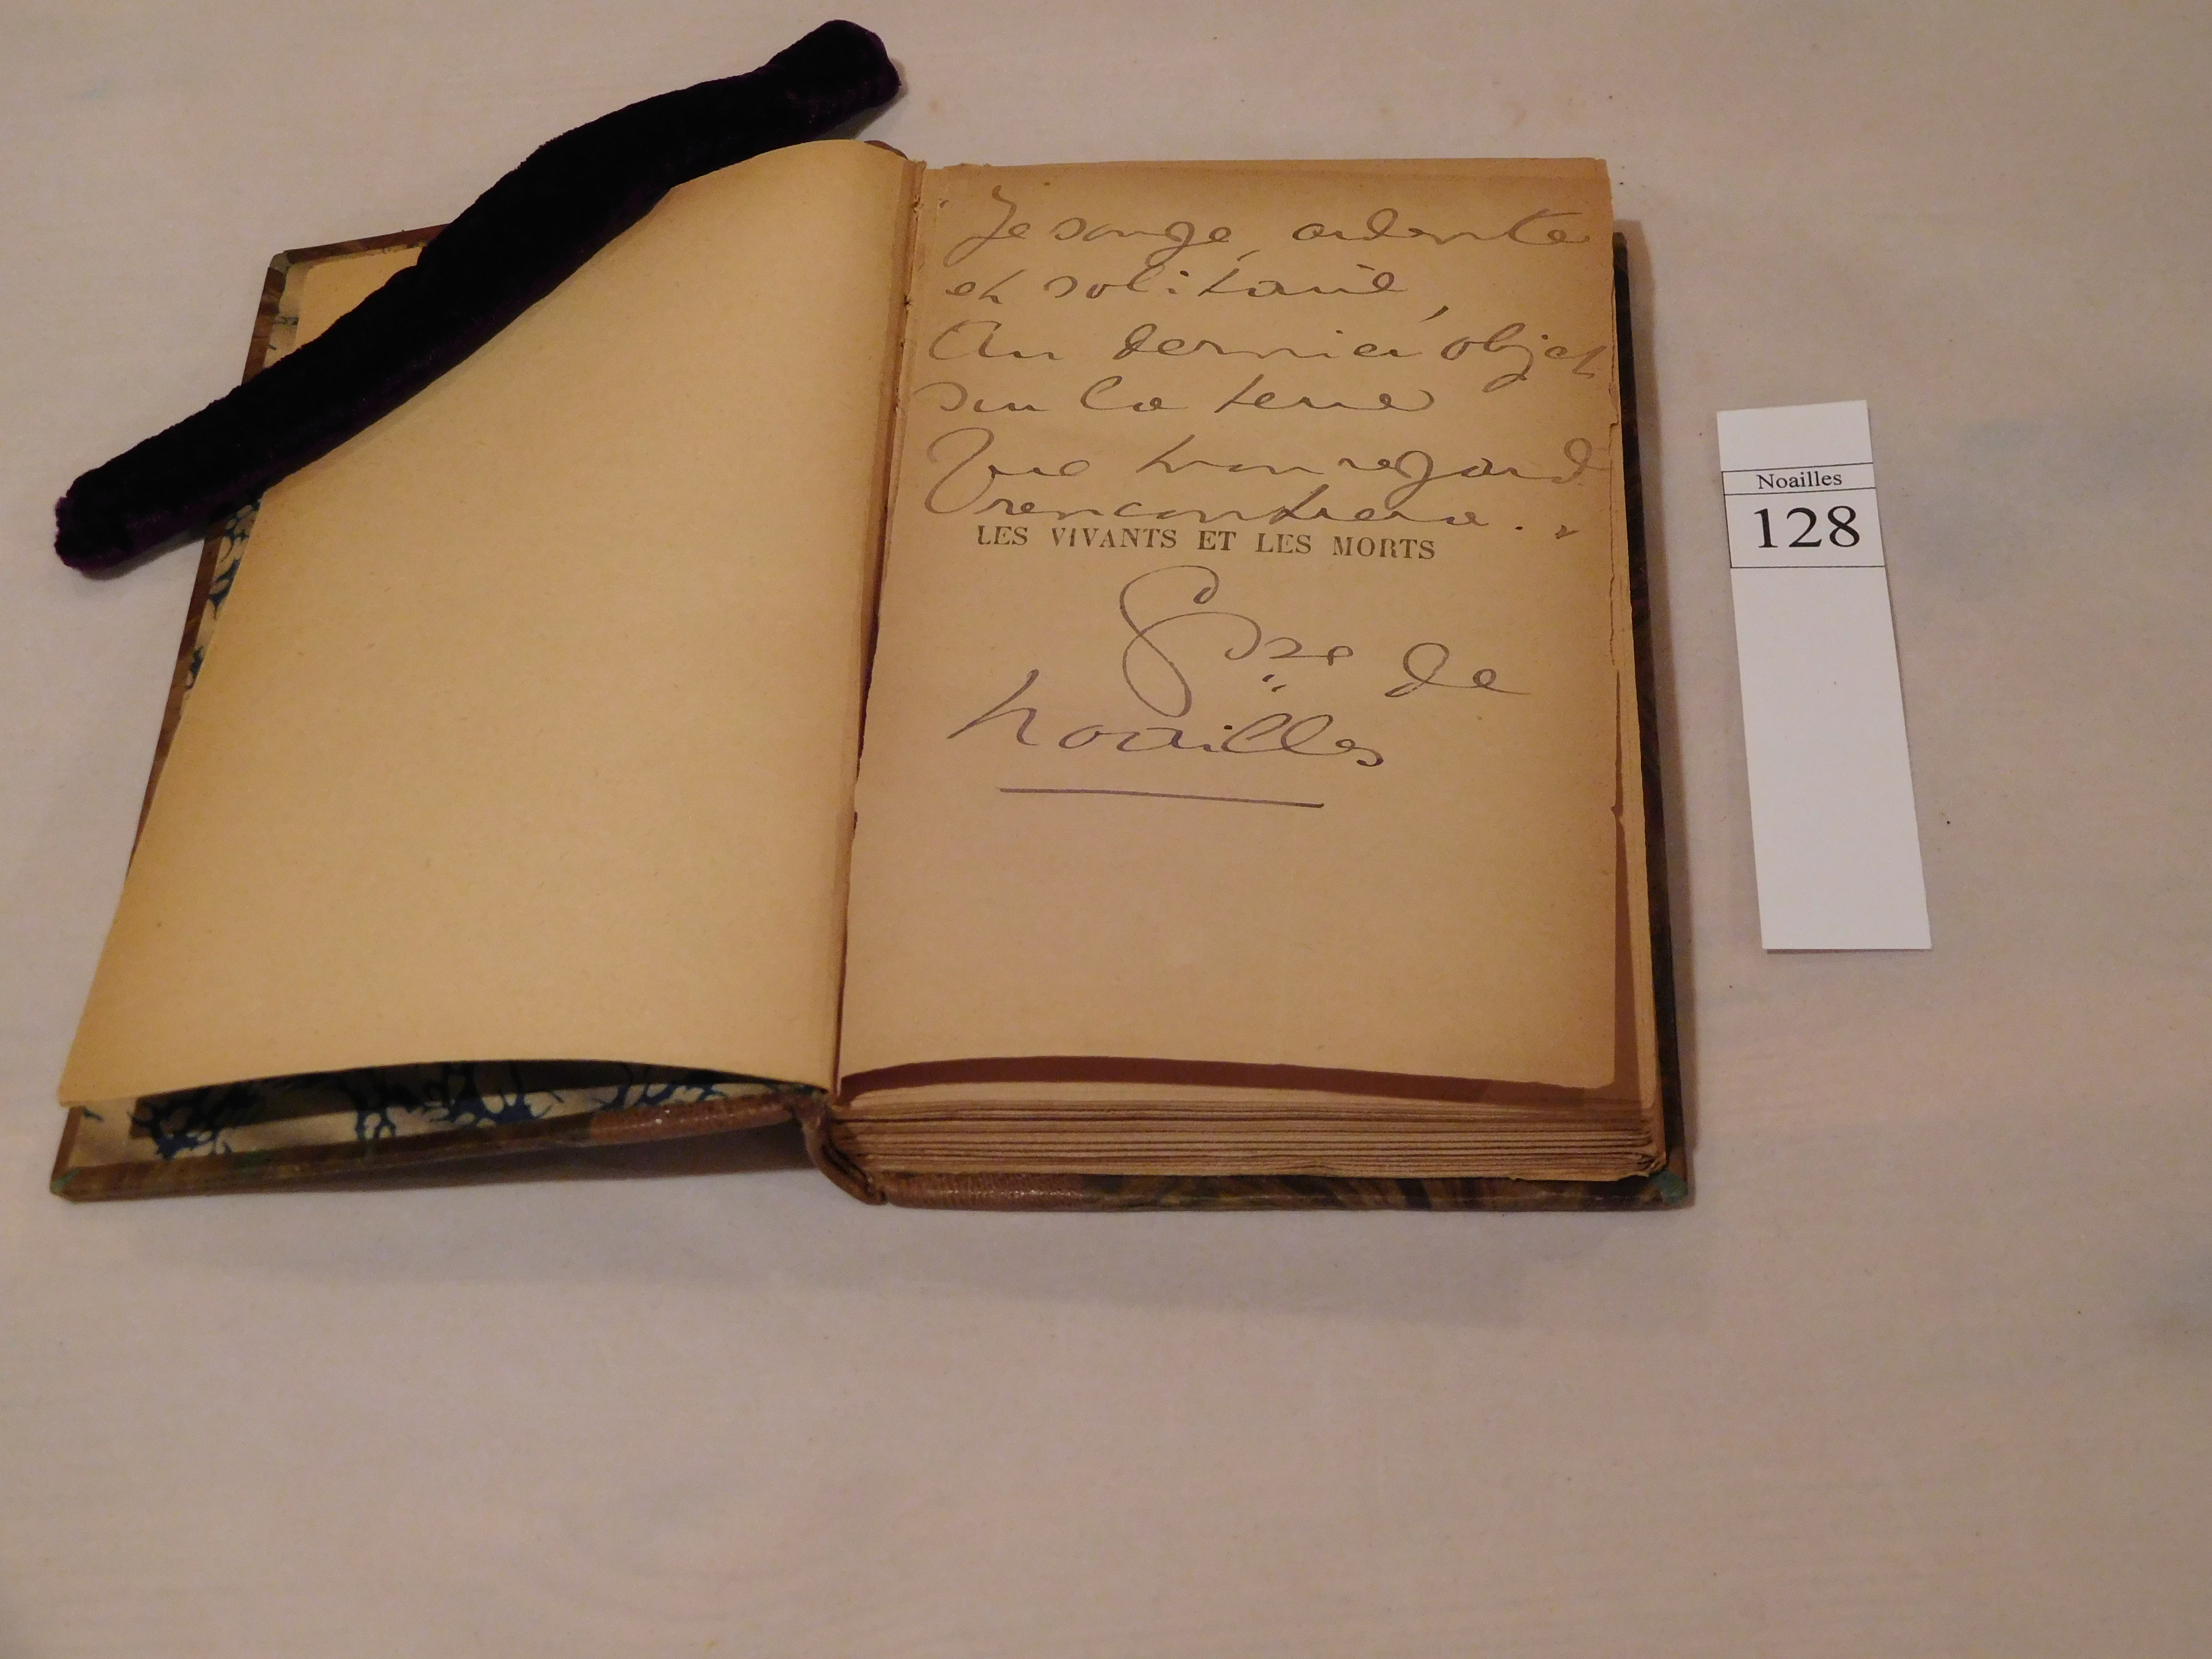 Je songe, ardente
et solitaire,
Au dernier objet
sur la terre
Que mon regard
rencontrera..
LES VIVANTS ET LES MORTS
Ctsse de
Noailles
Noailles
128